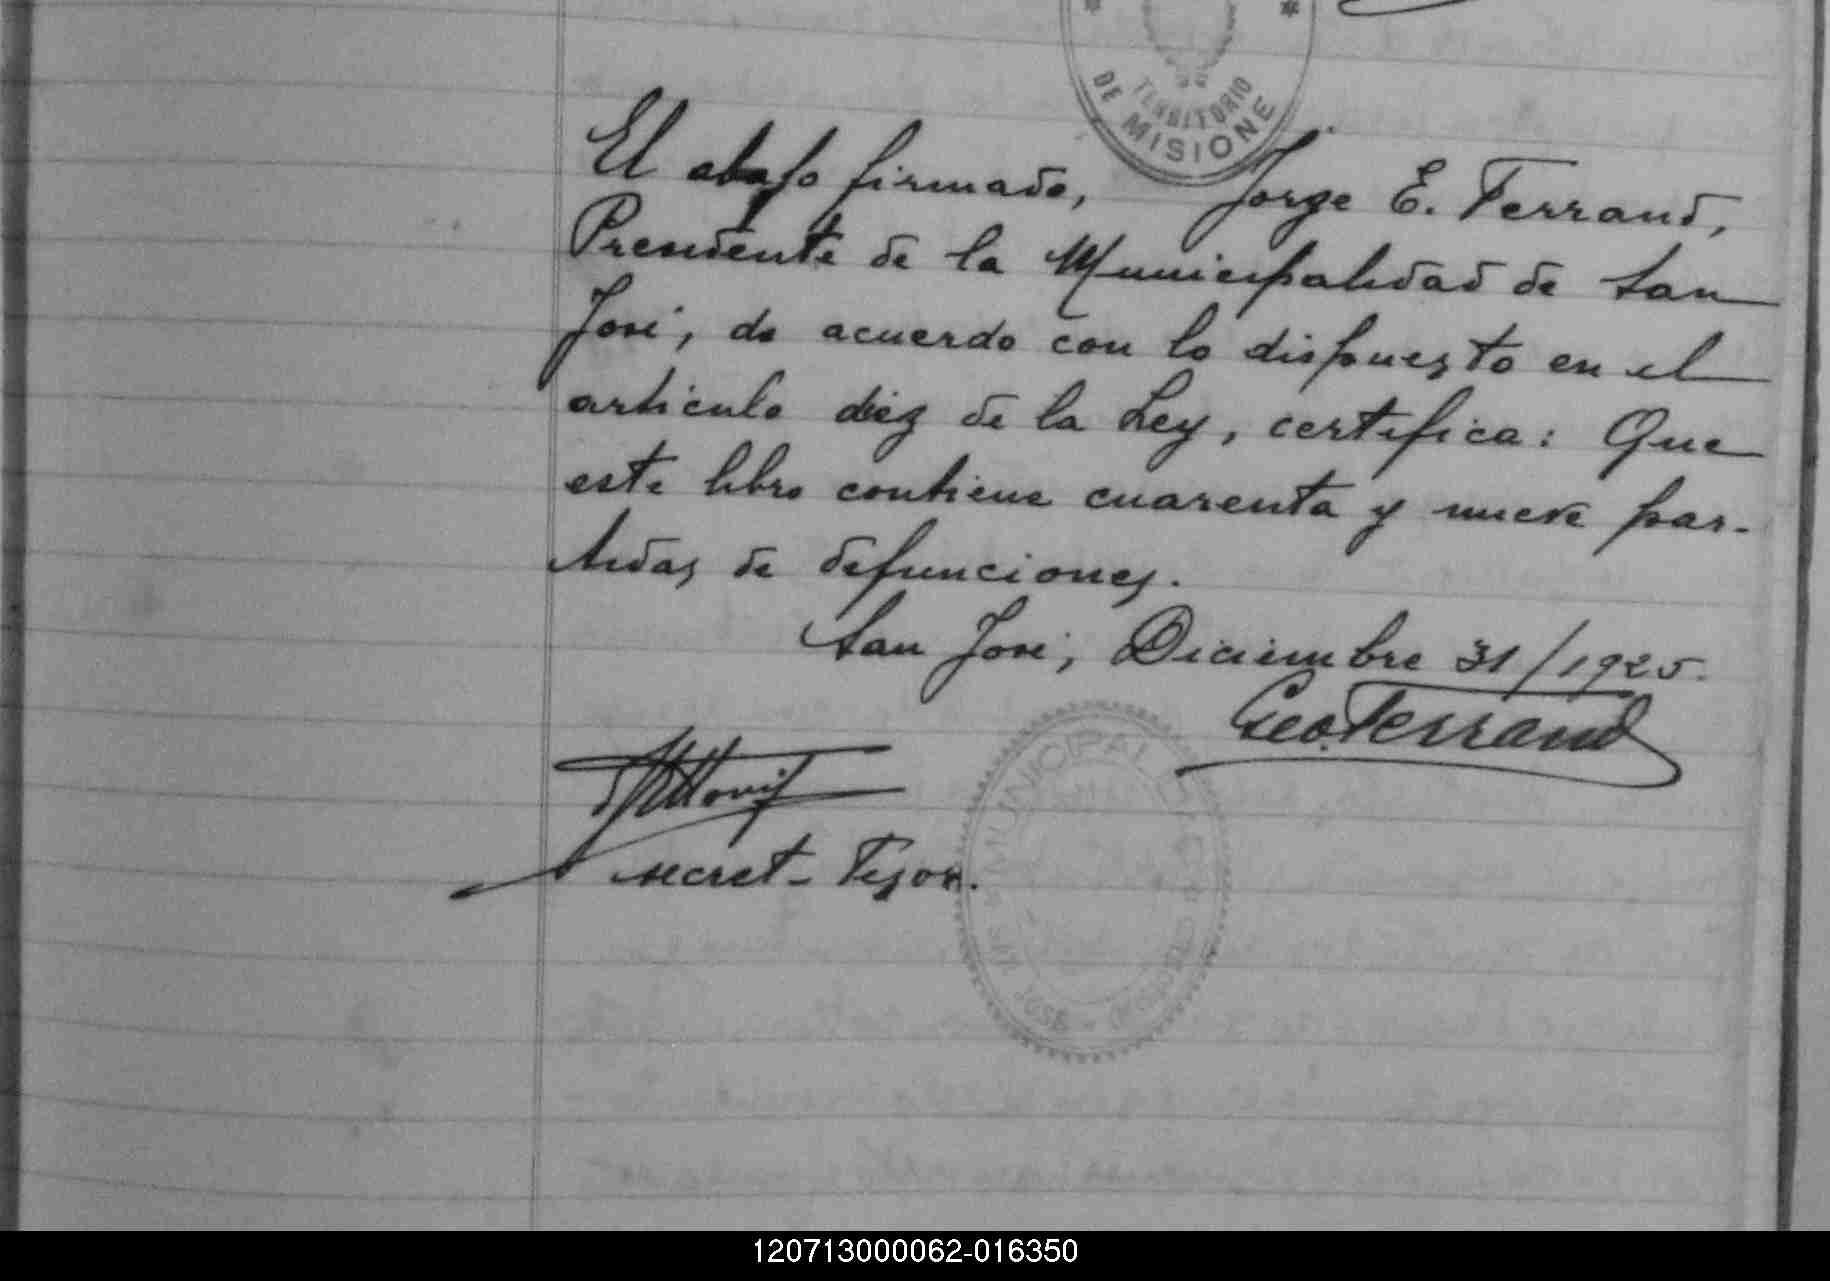 TERRITORIO
DE MISIONE
El abajo firmado, Jorge E. Ferrand,
Presidente de la Municipalidad de San
José, de acuerdo con lo dispuesto en el
artículo diez de la Ley, certifica: Que
este libro contiene cuarenta y nueve par-
tidas de defunciones.
San José, Diciembre 31/1925.
Geo. Ferrand
secret- Tesor.
MUNICIPAL
SAN JOSE
120713000062-016350